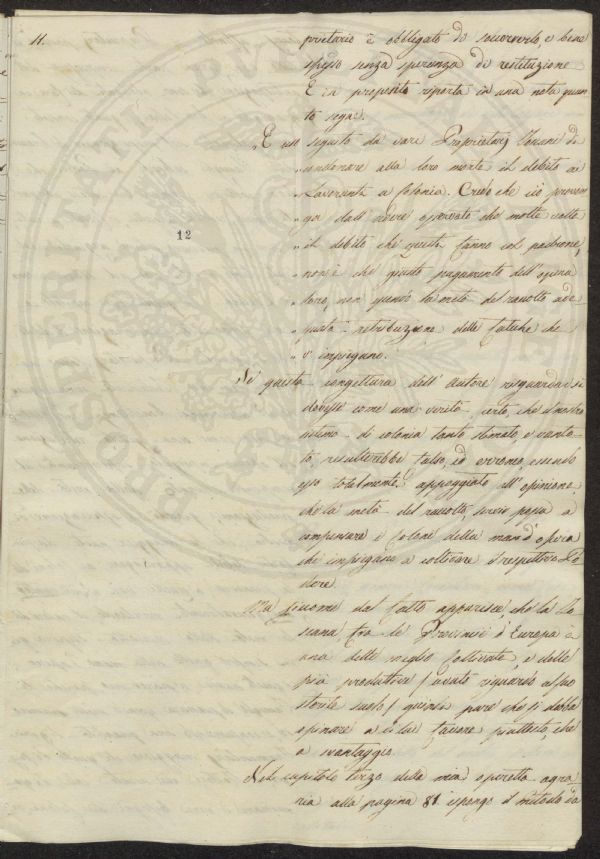 11.
prietario è obbligato di soccorrerlo, e bene
spesso senza speranza di restituzione
E in proposito riporta in una nota quan
to segue.
„ È uso seguito da varj Proprietarj Toscani di
„ condonare alla loro morte il debito ai
„ Lavoranti a Colonia. Credo che ciò proven
„ ga dall' avere osservato che molte volte
„ il debito che questi fanno col padrone,
„ non è che giusto pagamento dell' opera
„ loro, non essendo la metà del raccolto ade-
„ quata retribuzione delle fatiche che
„ v' impiegano.
12
Se questa congettura dell' Autore risguardar si
dovesse come una verità certo, che il nostro
sistema di colonia tanto stimato, e vanta-
to, resulterebbe falso, ed erroneo, essendo
esso totalmente appoggiato all' opinione,
che la metà del raccolto, servir possa a
compensare i Coloni della mano d' opera
che impiegano a coltivare il respettivo Po
dere
Ma siccome dal fatto apparisce, che la To
scana, tra le Provincie d' Europa è
una delle meglio coltivate, e delle
più produttive / avuto riguardo al suo
sterile suolo / quindi pare che si debba
opinare a di lui favore piuttosto, che
a svantaggio.
Nel capitolo terzo della mia operetta agra
ria alla pagina 81 espongo il metodo da
PROSPERITATI PUBLICAE